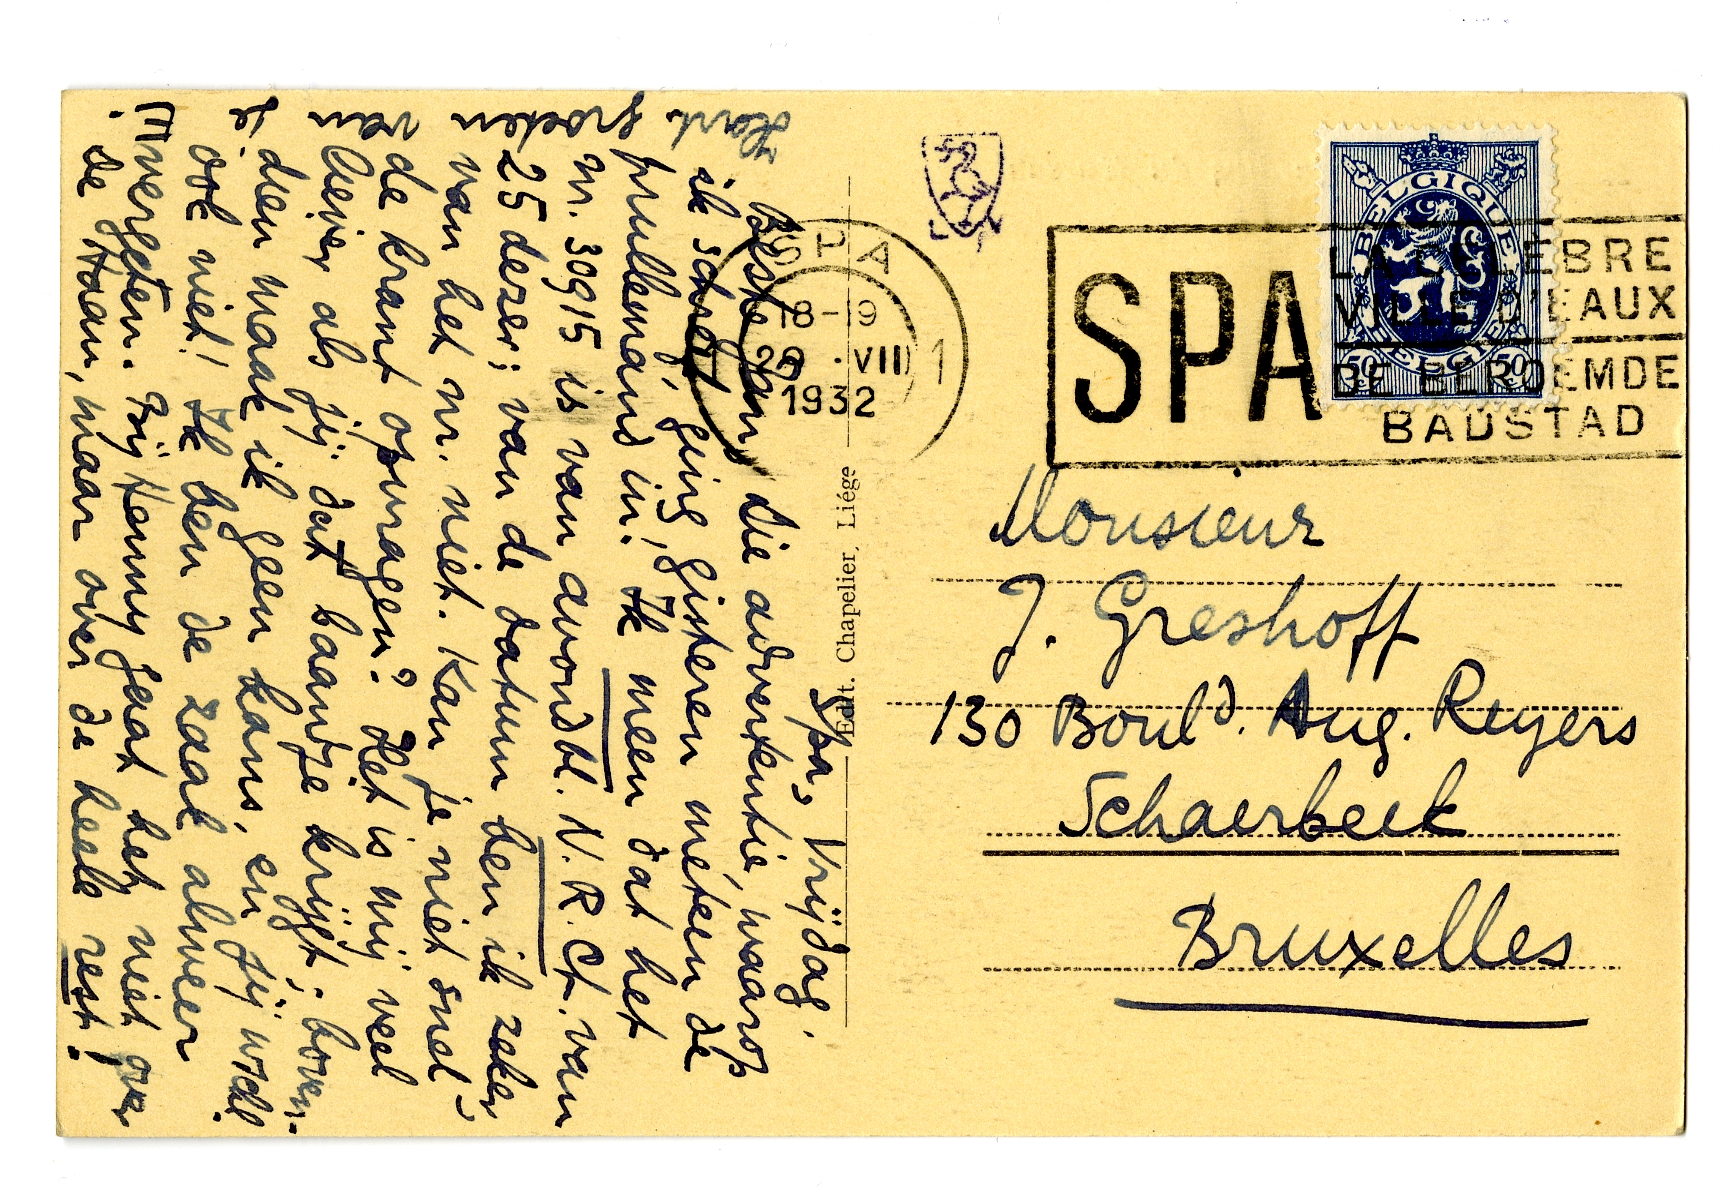 Spa, Vrijdag.
Beste Jan, Die advertentie, waarop
ik schreef, ging gisteren meteen de
prullemand in. Ik meen dat het
nr. 30915 is van avondbl. N.R.Ct. van
25 dezer; van de datum ben ik zeker,
van het nr. niet. Kan je niet snel
de krant opvragen? Het is mij veel
liever als jij dat baantje krijgt; boven-
dien maak ik geen kans, en jij wschl.
ook niet! Ik ben de zaak alweer
vergeten. Bij Henny gaat het niet over
de Haan, maar over de heele rest!
Hart. groeten van
je
E.
SPA
18-19
29 · VII
1932
1
SPA
LA CELEBRE
VILLE D'EAUX
DE BEROEMDE
BADSTAD
BELGIQUE
BELGIE
50 c
50 c
Edit. Chapelier, Liége
Monsieur
J. Greshoff
130 Bould. Aug. Reyers
Schaerbeek
Bruxelles